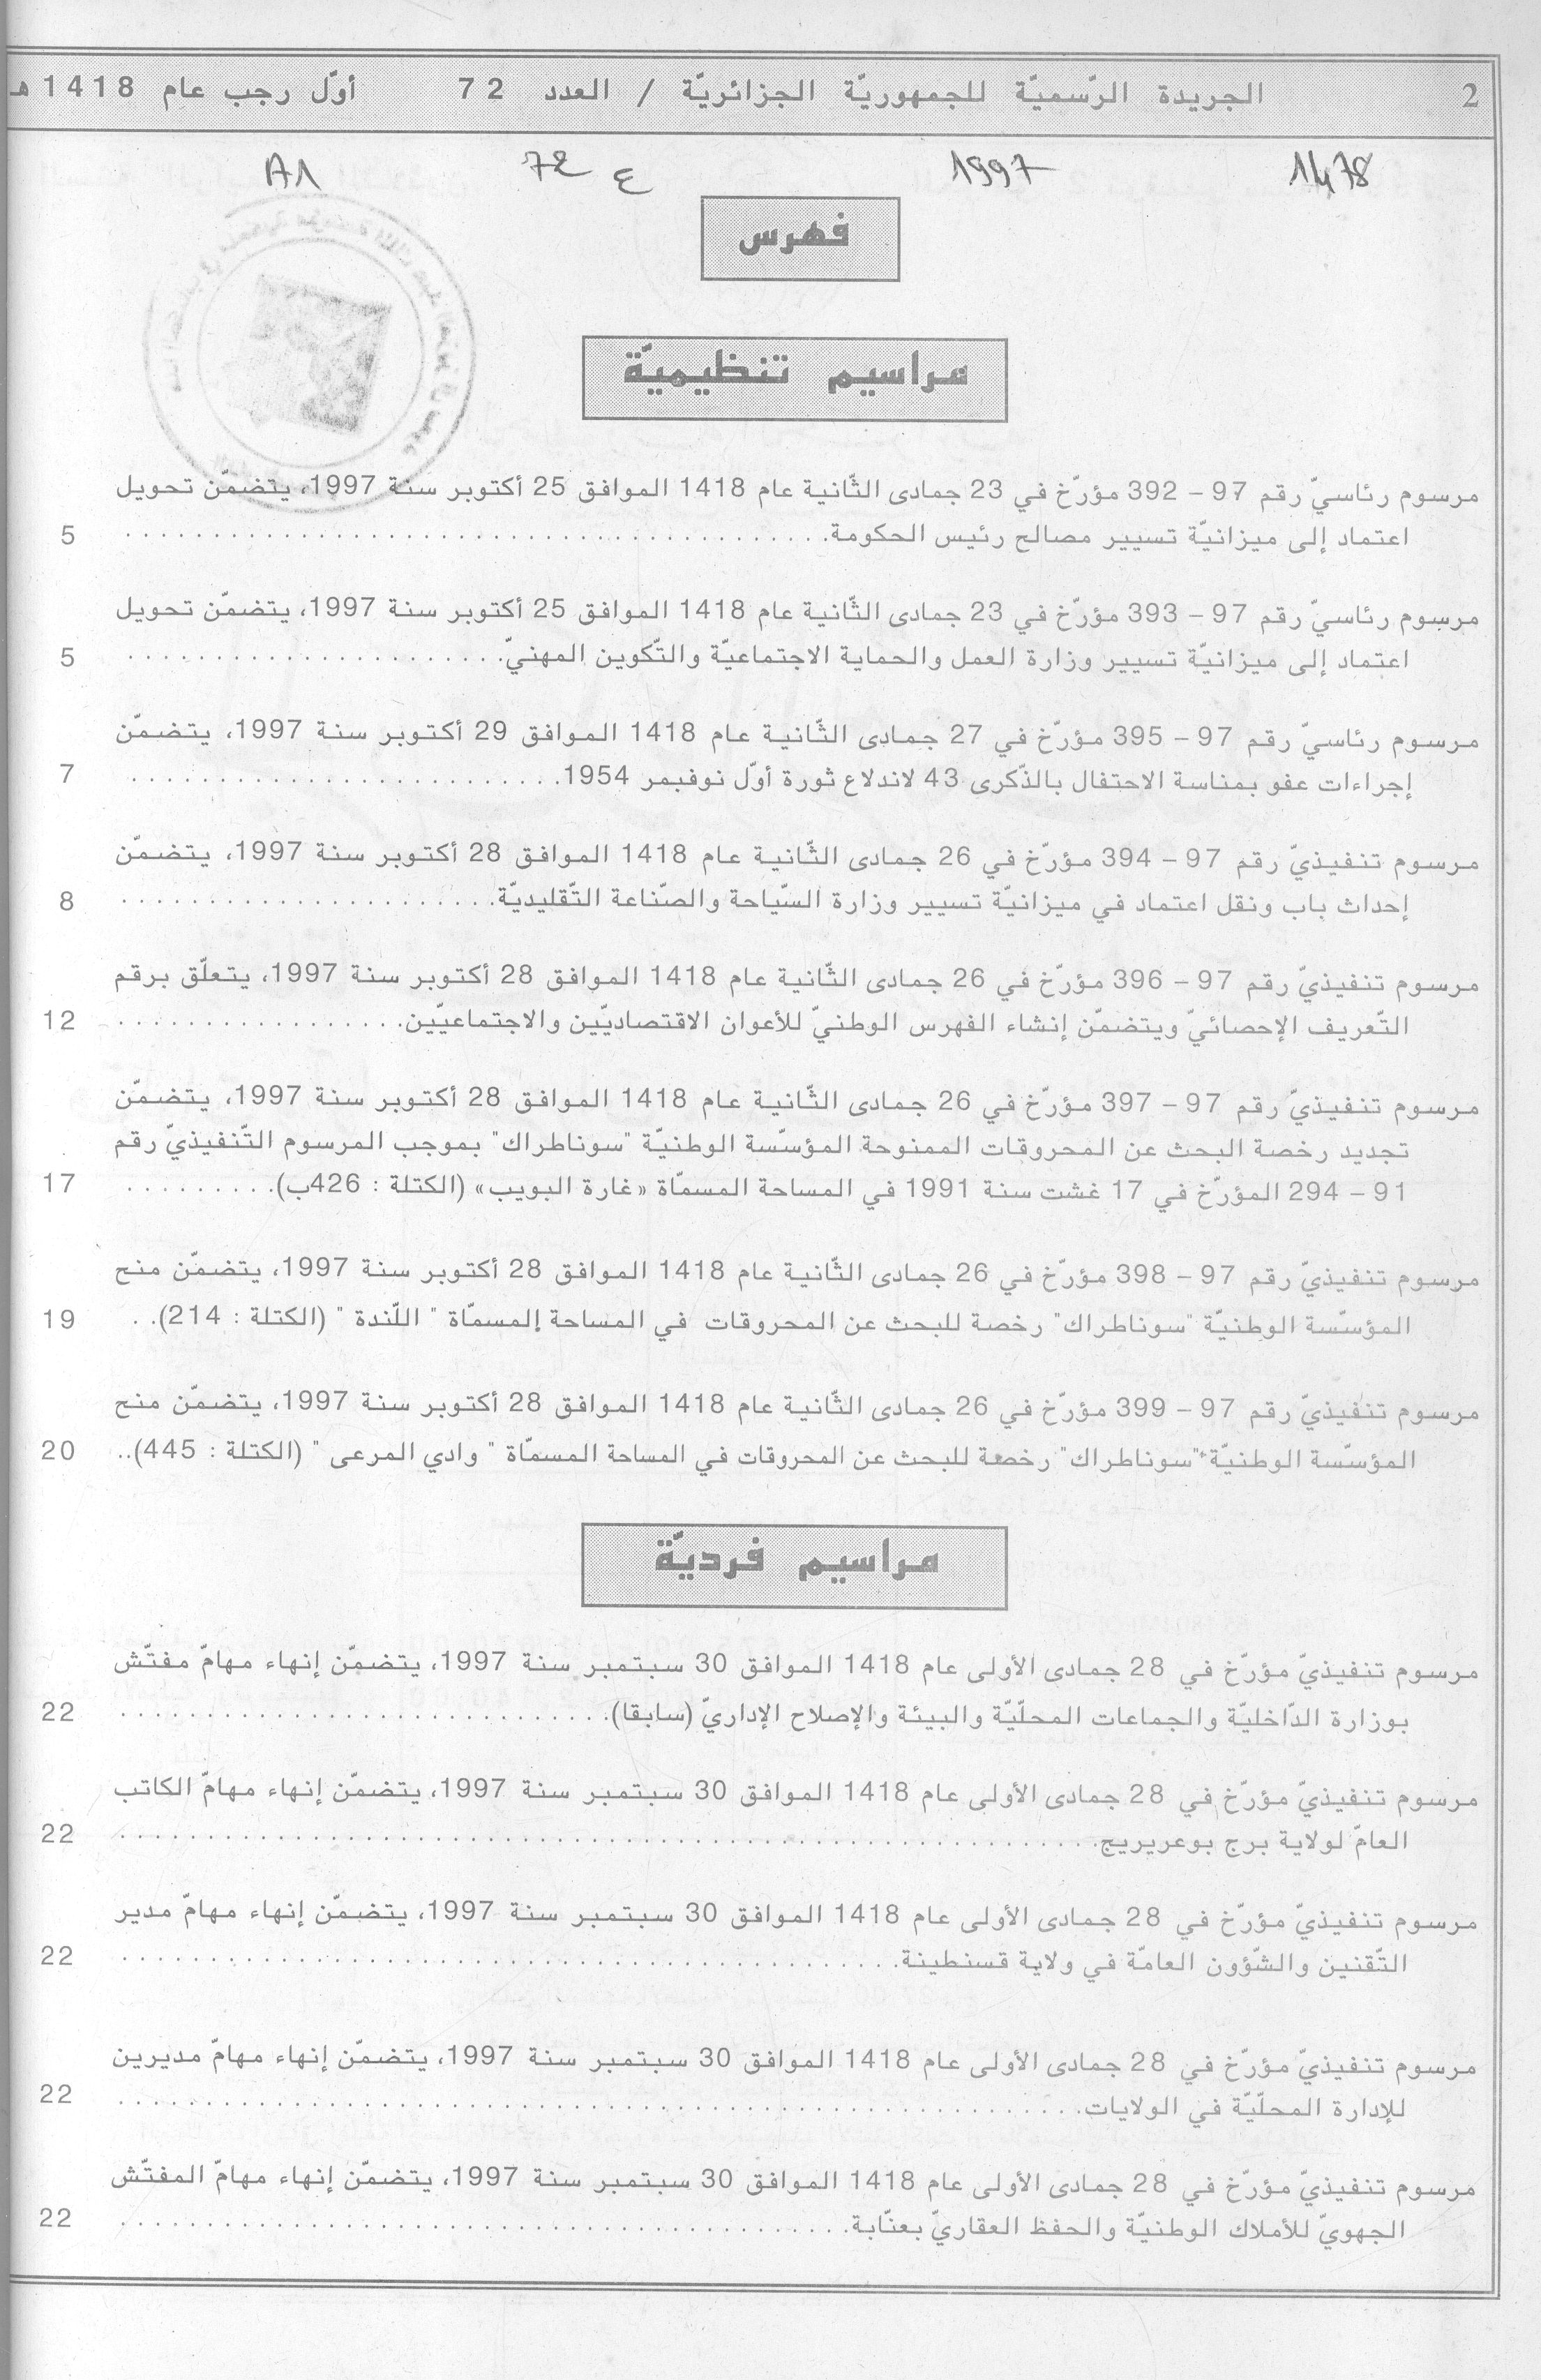 2 الجريدة الرّسميّة للجمهوريّة الجزائريّة / العدد 72 أوّل رجب عام 1418 هـ
1478 1997 ع 72 A1
فهرس
مراسيم تنظيميّة
مرسوم رئاسيّ رقم 97 – 392 مؤرّخ في 23 جمادى الثّانية عام 1418 الموافق 25 أكتوبر سنة 1997، يتضمّن تحويل
اعتماد إلى ميزانيّة تسيير مصالح رئيس الحكومة. . . . . . . . . . . . . . . . . . . . 5
مرسوم رئاسيّ رقم 97 – 393 مؤرّخ في 23 جمادى الثّانية عام 1418 الموافق 25 أكتوبر سنة 1997، يتضمّن تحويل
اعتماد إلى ميزانيّة تسيير وزارة العمل والحماية الاجتماعيّة والتّكوين المهنيّ. . . . . . . . . . . . 5
مرسوم رئاسيّ رقم 97 – 395 مؤرّخ في 27 جمادى الثّانية عام 1418 الموافق 29 أكتوبر سنة 1997، يتضمّن
إجراءات عفو بمناسة الاحتفال بالذّكرى 43 لاندلاع ثورة أوّل نوفبمر 1954. . . . . . . . . . . . 7
مرسوم تنفيذيّ رقم 97 – 394 مؤرّخ في 26 جمادى الثّانية عام 1418 الموافق 28 أكتوبر سنة 1997، يتضمّن
إحداث باب ونقل اعتماد في ميزانيّة تسيير وزارة السّياحة والصّناعة التّقليديّة. . . . . . . . . . . . 8
مرسوم تنفيذيّ رقم 97 – 396 مؤرّخ في 26 جمادى الثّانية عام 1418 الموافق 28 أكتوبر سنة 1997، يتعلّق برقم
التّعريف الإحصائيّ ويتضمّن إنشاء الفهرس الوطنيّ للأعوان الاقتصاديّين والاجتماعيّين. . . . . . . . . . 12
مرسوم تنفيذيّ رقم 97 – 397 مؤرّخ في 26 جمادى الثّانية عام 1418 الموافق 28 أكتوبر سنة 1997، يتضمّن
تجديد رخصة البحث عن المحروقات الممنوحة المؤسّسة الوطنيّة "سوناطراك" بموجب المرسوم التّنفيذيّ رقم
91 – 294 المؤرّخ في 17 غشت سنة 1991 في المساحة المسمّاة «غارة البويب» (الكتلة : 426ب). . . . . . . . . 17
مرسوم تنفيذيّ رقم 97 – 398 مؤرّخ في 26 جمادى الثّانية عام 1418 الموافق 28 أكتوبر سنة 1997، يتضمّن منح
المؤسّسة الوطنيّة "سوناطراك" رخصة للبحث عن المحروقات في المساحة المسمّاة " اللّندة " (الكتلة : 214). . 19
مرسوم تنفيذيّ رقم 97 – 399 مؤرّخ في 26 جمادى الثّانية عام 1418 الموافق 28 أكتوبر سنة 1997، يتضمّن منح
المؤسّسة الوطنيّة "سوناطراك" رخصة للبحث عن المحروقات في المساحة المسمّاة " وادي المرعى " (الكتلة : 445).. 20
مراسيم فرديّة
مرسوم تنفيذيّ مؤرّخ في 28 جمادى الأولى عام 1418 الموافق 30 سبتمبر سنة 1997، يتضمّن إنهاء مهامّ مفتّش
بوزارة الدّاخليّة والجماعات المحلّيّة والبيئة والإصلاح الإداريّ (سابقا). . . . . . . . . . . . . . . . 22
مرسوم تنفيذيّ مؤرّخ في 28 جمادى الأولى عام 1418 الموافق 30 سبتمبر سنة 1997، يتضمّن إنهاء مهامّ الكاتب
العامّ لولاية برج بوعريريج. . . . . . . . . . . . . . . . . . . . . . . . 22
مرسوم تنفيذيّ مؤرّخ في 28 جمادى الأولى عام 1418 الموافق 30 سبتمبر سنة 1997، يتضمّن إنهاء مهامّ مدير
التّقنين والشّؤون العامّة في ولاية قسنطينة. . . . . . . . . . . . . . . . . . . . 22
مرسوم تنفيذيّ مؤرّخ في 28 جمادى الأولى عام 1418 الموافق 30 سبتمبر سنة 1997، يتضمّن إنهاء مهامّ مديرين
للإدارة المحلّيّة في الولايات. . . . . . . . . . . . . . . . . . . . . . . . 22
مرسوم تنفيذيّ مؤرّخ في 28 جمادى الأولى عام 1418 الموافق 30 سبتمبر سنة 1997، يتضمّن إنهاء مهامّ المفتّش
الجهويّ للأملاك الوطنيّة والحفظ العقاريّ بعنّابة. . . . . . . . . . . . . . . . . . . . 22